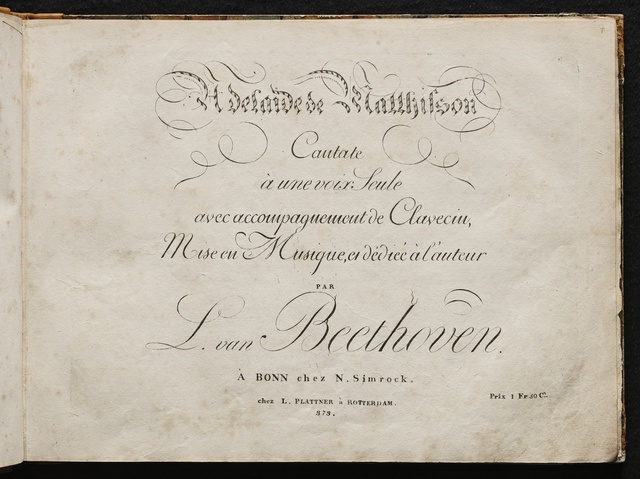 Adelaide de Matthisson
Cantate
à une voix Seule
avec accompagnement de Clavecin,
Mise en Musique, et dédiée à l'auteur
PAR
L. van Beethoven.
À BONN chez N. Simrock.
chez L. PLATTNER à ROTTERDAM.
Prix 1 Fr. 50 Cs.
373.